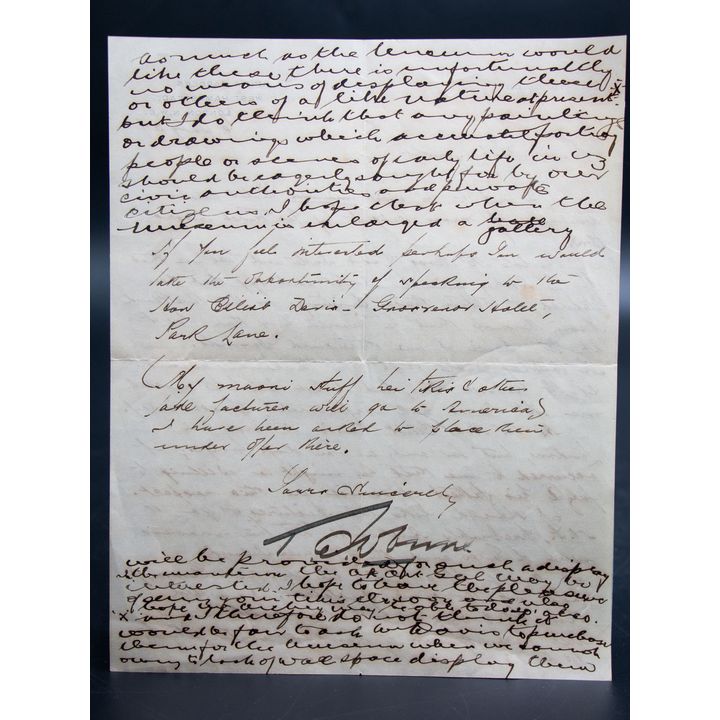 as much as the Museum would
like these there is unfortunately
no means of displaying these x
or others of a like nature at present
but I do think that any paintings
or drawings which accurately portray
people or scenes of early life in NZ
should be eagerly sought for by our
civic authorities and private
citizens. I hope that when the
Museum is enlarged a gallery
If you feel interested perhaps you would
take the opportunity of speaking to the
Hon Elliot Davis - Grosvenor Hotel,
Park Lane.
(My maori stuff hei tikis & other
jade factures will go to America)
I have been asked to place them
under offer there.
Yours Sincerely
will be provided for such a display
in the meantime the
interested. I hope to have the pleasure
of seeing you this
hope
x and I therefore do not think it
would be fair to ask Mr Davis to purchase
them for the Museum when we cannot
owing to lack of wall space display them